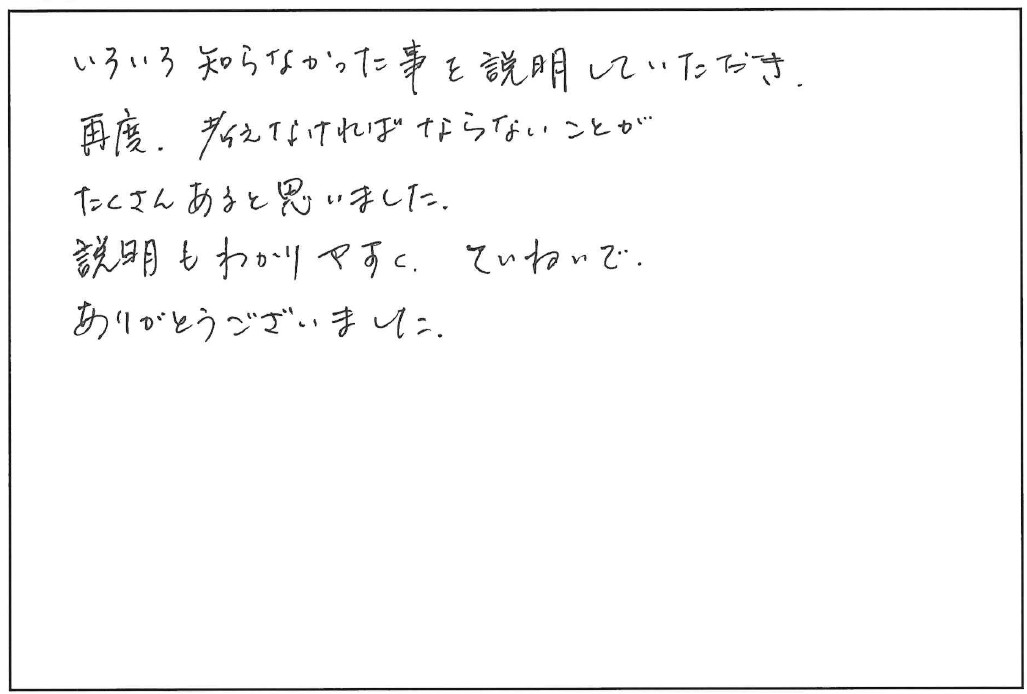 いろいろ知らなかった事を説明していただき、
再度、考えなければならないことが
たくさんあると思いました。
説明もわかりやすく、ていねいで、
ありがとうございました。